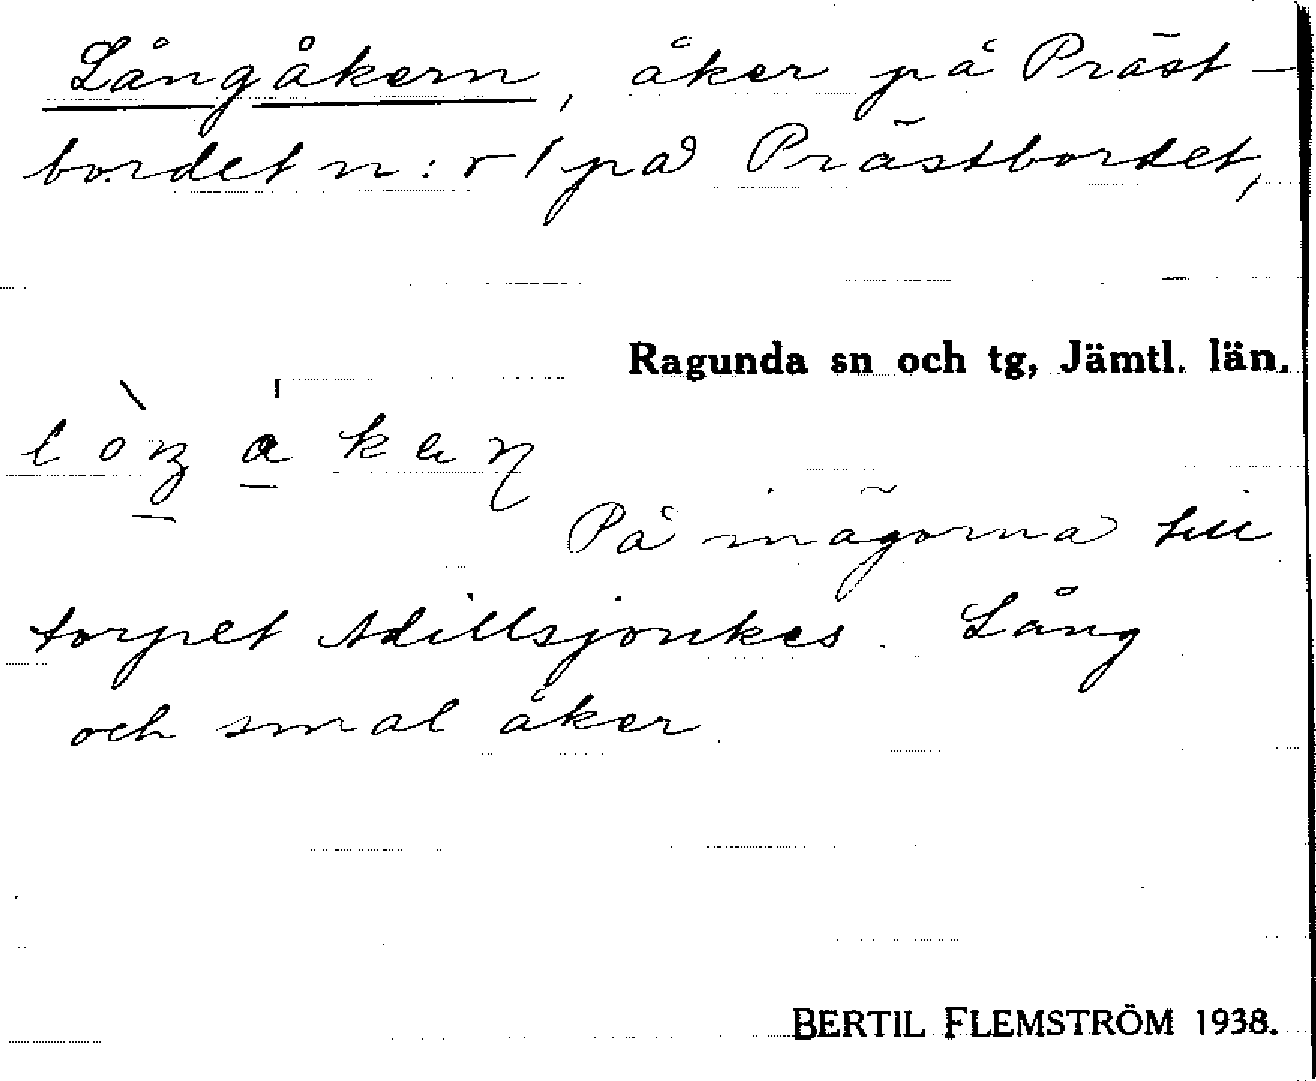 Långåkern, åker på Präst-
bordet n:r 1 på Prästbordet,
Ragunda sn och tg, Jämtl. län.
På inägorna till
torpet . Lång
och smal åker.
BERTIL FLEMSTRÖM 1938.